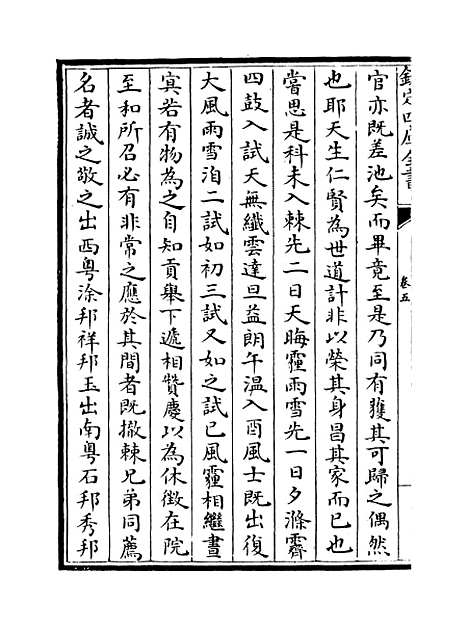 欽定四庫全書
卷五
官亦既差池矣而畢竟至是乃同有獲其可歸之偶然
也耶天生仁賢為世道計非以榮其身昌其家而已也
嘗思是科未入棘先二日天晦霾雨雪先一日夕滌霽
四鼓入試天無纖雲達旦益朗午溫入酉風士既出復
大風雨雪洎二試如初三試又如之試已風霾相繼晝
㝠若有物為之自知貢舉下遞相贊慶以為休徵在院
至和所召必有非常之應於其間者既撤棘兄弟同薦
名者誠之敬之出西粵涂邦祥邦玉出南粵石邦秀邦